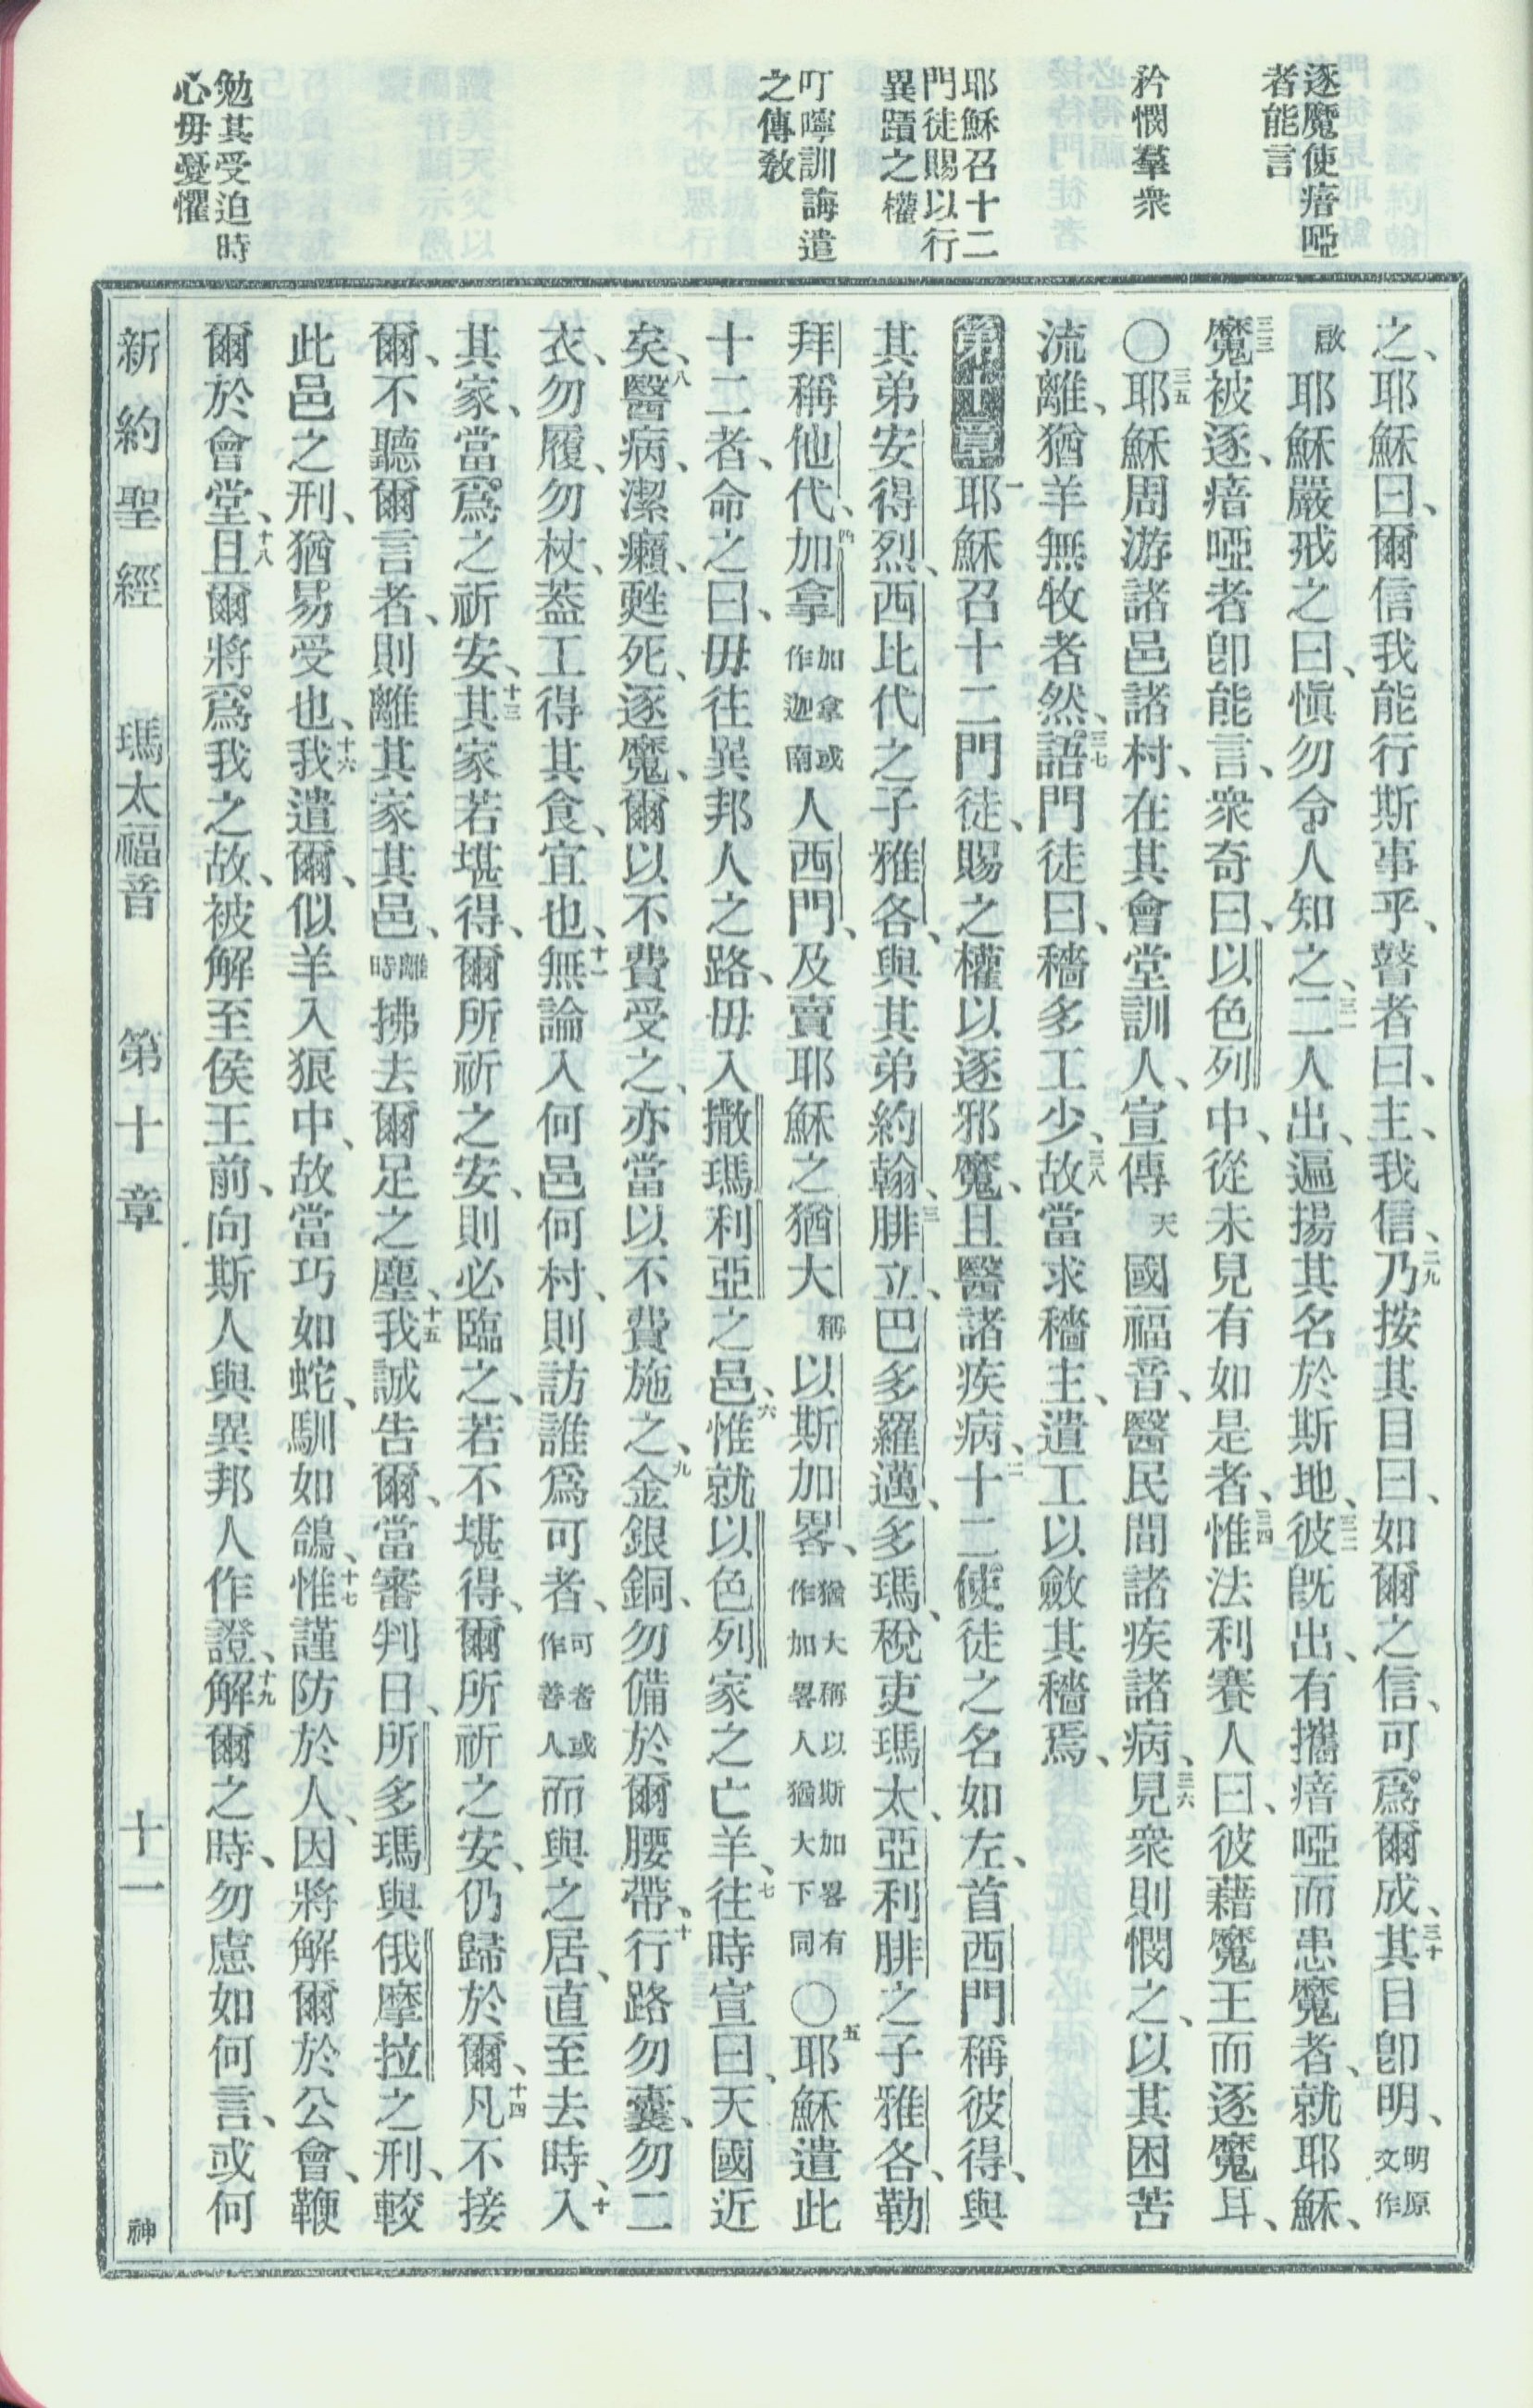 逐魔使瘖啞
者能言
矜憫羣衆
耶穌召十二
門徒賜以行
異蹟之權
叮嚀訓誨遣
之傳教
勉其受迫時
心毋憂懼
之、耶穌曰、爾信我能行斯事乎、瞽者曰、主、我信、二九乃按其目曰、如爾之信、可爲爾成、三十其目卽明、明原文作
啟 耶穌嚴戒之曰、愼勿令人知之、三一二人出、遍揚其名於斯地、三二彼旣出、有攜瘖啞而患魔者、就耶穌、
三三魔被逐、瘖啞者卽能言、衆奇曰、以色列中、從未見有如是者、三四惟法利賽人曰、彼藉魔王而逐魔耳、
〇三五耶穌周游諸邑諸村、在其會堂訓人、宣傳天國福音、醫民間諸疾諸病、三六見衆則憫之、以其困苦
流離、猶羊無牧者然、三七語門徒曰、穡多工少、三八故當求穡主、遣工以斂其穡焉、
第十章 一耶穌召十二門徒、賜之權以逐邪魔、且醫諸疾病、二十二使徒之名如左、首西門稱彼得、與
其弟安得烈、西比代之子雅各、與其弟約翰、三腓立、巴多羅邁、多瑪、稅吏瑪太、亞利腓之子雅各、勒
拜稱他代、四加拿加拿或作迦南人西門、及賣耶穌之猶大稱以斯加畧、猶大稱以斯加畧有作加畧人猶大下同〇五耶穌遣此
十二者、命之曰、毋往異邦人之路、毋入撒瑪利亞之邑、六惟就以色列家之亡羊、七往時宣曰、天國近
矣、八醫病、潔癩、甦死、逐魔、爾以不費受之、亦當以不費施之、九金銀銅、勿備於爾腰帶、十行路勿囊、勿二
衣、勿履、勿杖、葢工得其食、宜也、十一無論入何邑何村、則訪誰爲可者、可者或作善人而與之居、直至去時、十二入
其家、當爲之祈安、十三其家若堪得、爾所祈之安、則必臨之、若不堪得、爾所祈之安、仍歸於爾、十四凡不接
爾、不聽爾言者、則離其家其邑、離時拂去爾足之塵、十五我誠告爾、當審判日、所多瑪與俄摩拉之刑、較
此邑之刑、猶易受也、十六我遣爾、似羊入狼中、故當巧如蛇、馴如鴿、十七惟謹防於人、因將解爾於公會、鞭
爾於會堂、十八且爾將爲我之故、被解至侯王前、向斯人與異邦人作證、十九解爾之時、勿慮如何言、或何
新約聖經 瑪太福音 第十章 十一 神